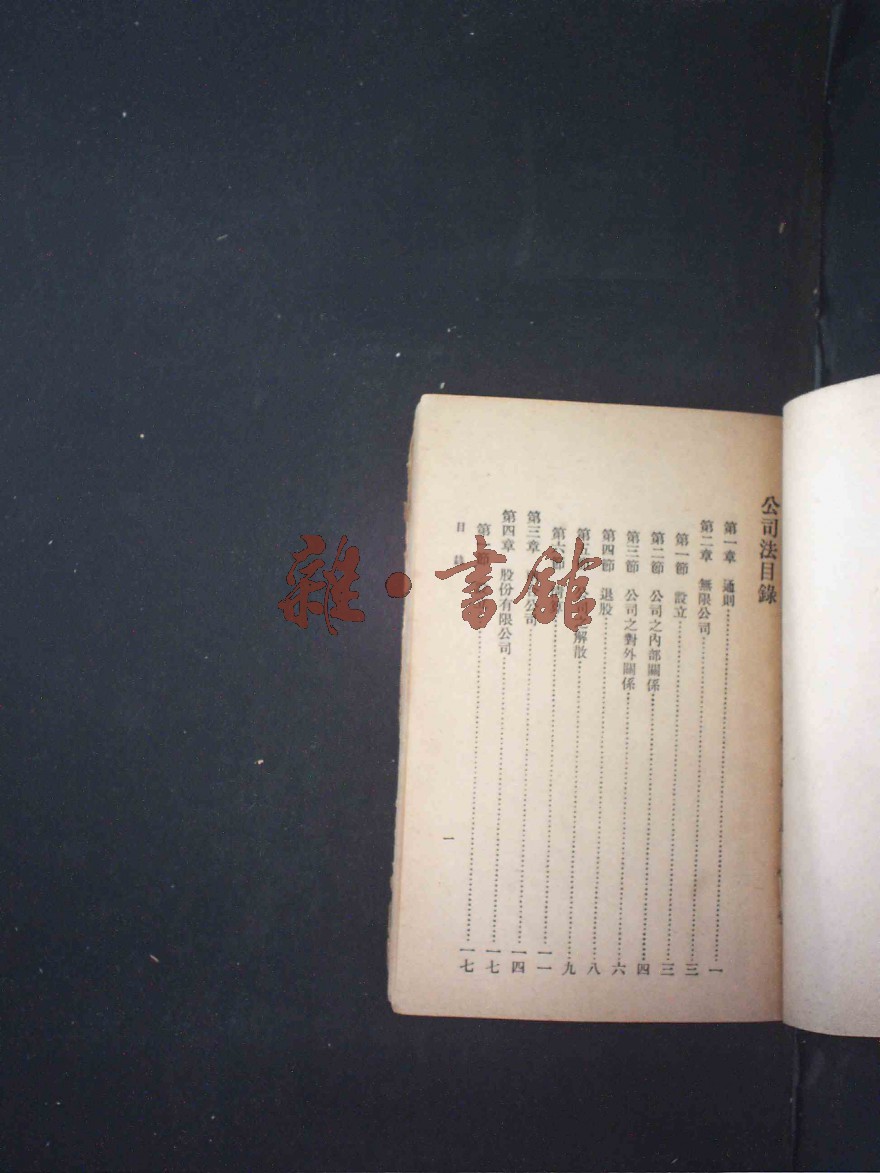 公司法目錄
第一章 通則……一
第二章 無限公司……三
第一節 設立……三
第二節 公司之內部關係……四
第三節 公司之對外關係……六
第四節 退股……八
第五 解散……九
第六節……一一
第三章 公司……一四
第四章 股份有限公司……一七
第 節……一七
目
一
雜·書館